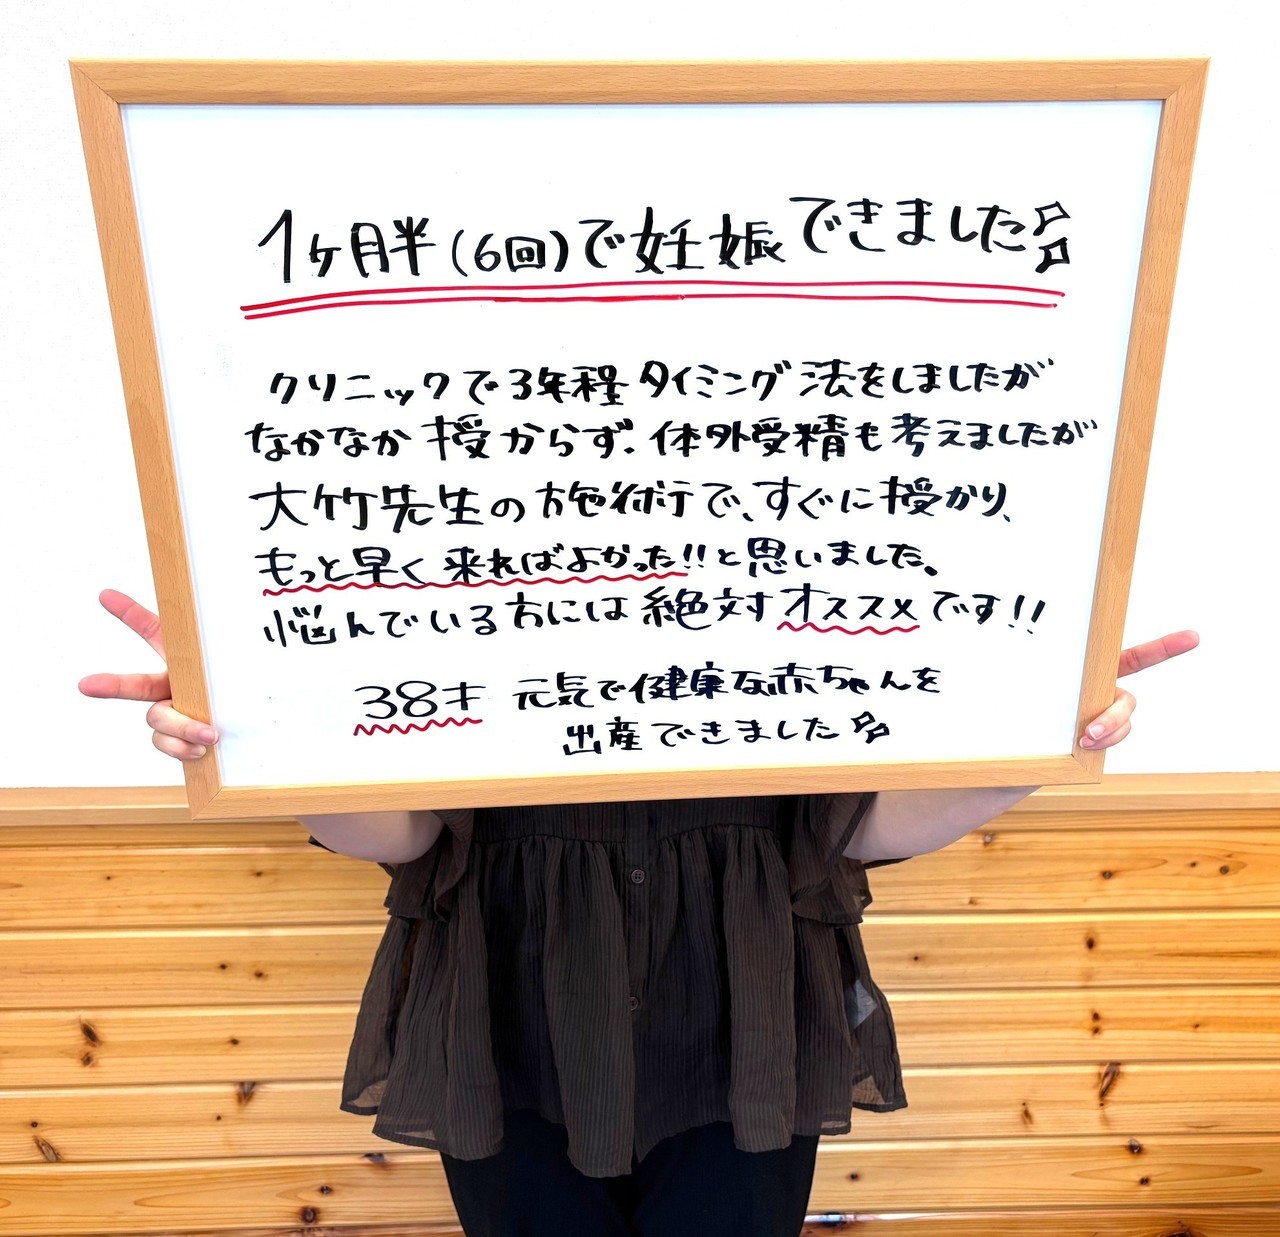 1ヶ月半(6回)で妊娠できました
クリニックで3年程タイミング法をしましたが
なかなか授からず、体外受精も考えましたが
大竹先生の施術で、すぐに授かり、
もっと早く来ればよかった!!と思いました。
悩んでいる方には絶対オススメです!!
38才 元気で健康な赤ちゃんを
出産できました